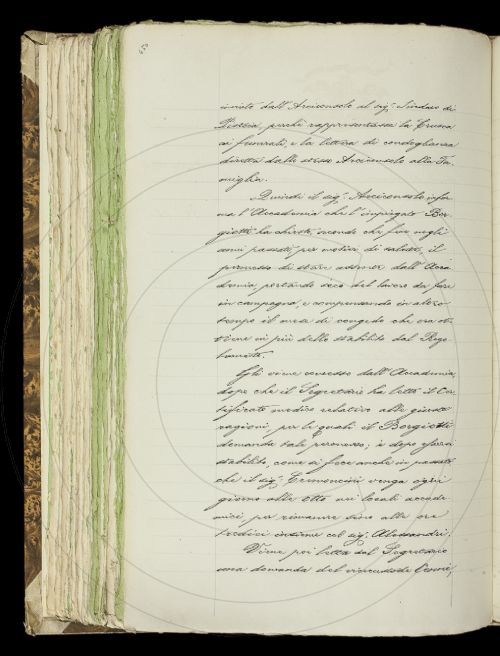 inviato dall'Arciconsolo al sig. Sindaco di
perché rappresentasse la Crusca
ai funerali, e la lettera di condoglianza
diretta dallo stesso Arciconsolo alla Fa-
miglia.
Quindi il sig. Arciconsolo infor-
ma l'Accademia che l'impiegato Bor-
giotti ha chiesto, secondo che fece negli
anni passati per motivi di salute, il
permesso di stare assente dall'Acca-
demia, portando seco del lavoro da fare
in campagna, e compensando in altro
tempo il mese di congedo che ora ot-
tiene in più dello stabilito dal Rego-
lamento.
Gli viene concesso dall'Accademia,
dopo che il Segretario ha letto il Cer-
tificato medico relativo alle giuste
ragioni, per le quali il Borgiotti
domanda tale permesso; e dopo essersi
stabilito, come si fece anche in passato,
che il sig. venga ogni
giorno alle otto nei locali accade-
mici per rimanere sino alle ore
tredici insieme col sig. Alessandri.
Viene poi letta dal Segretario
una domanda del